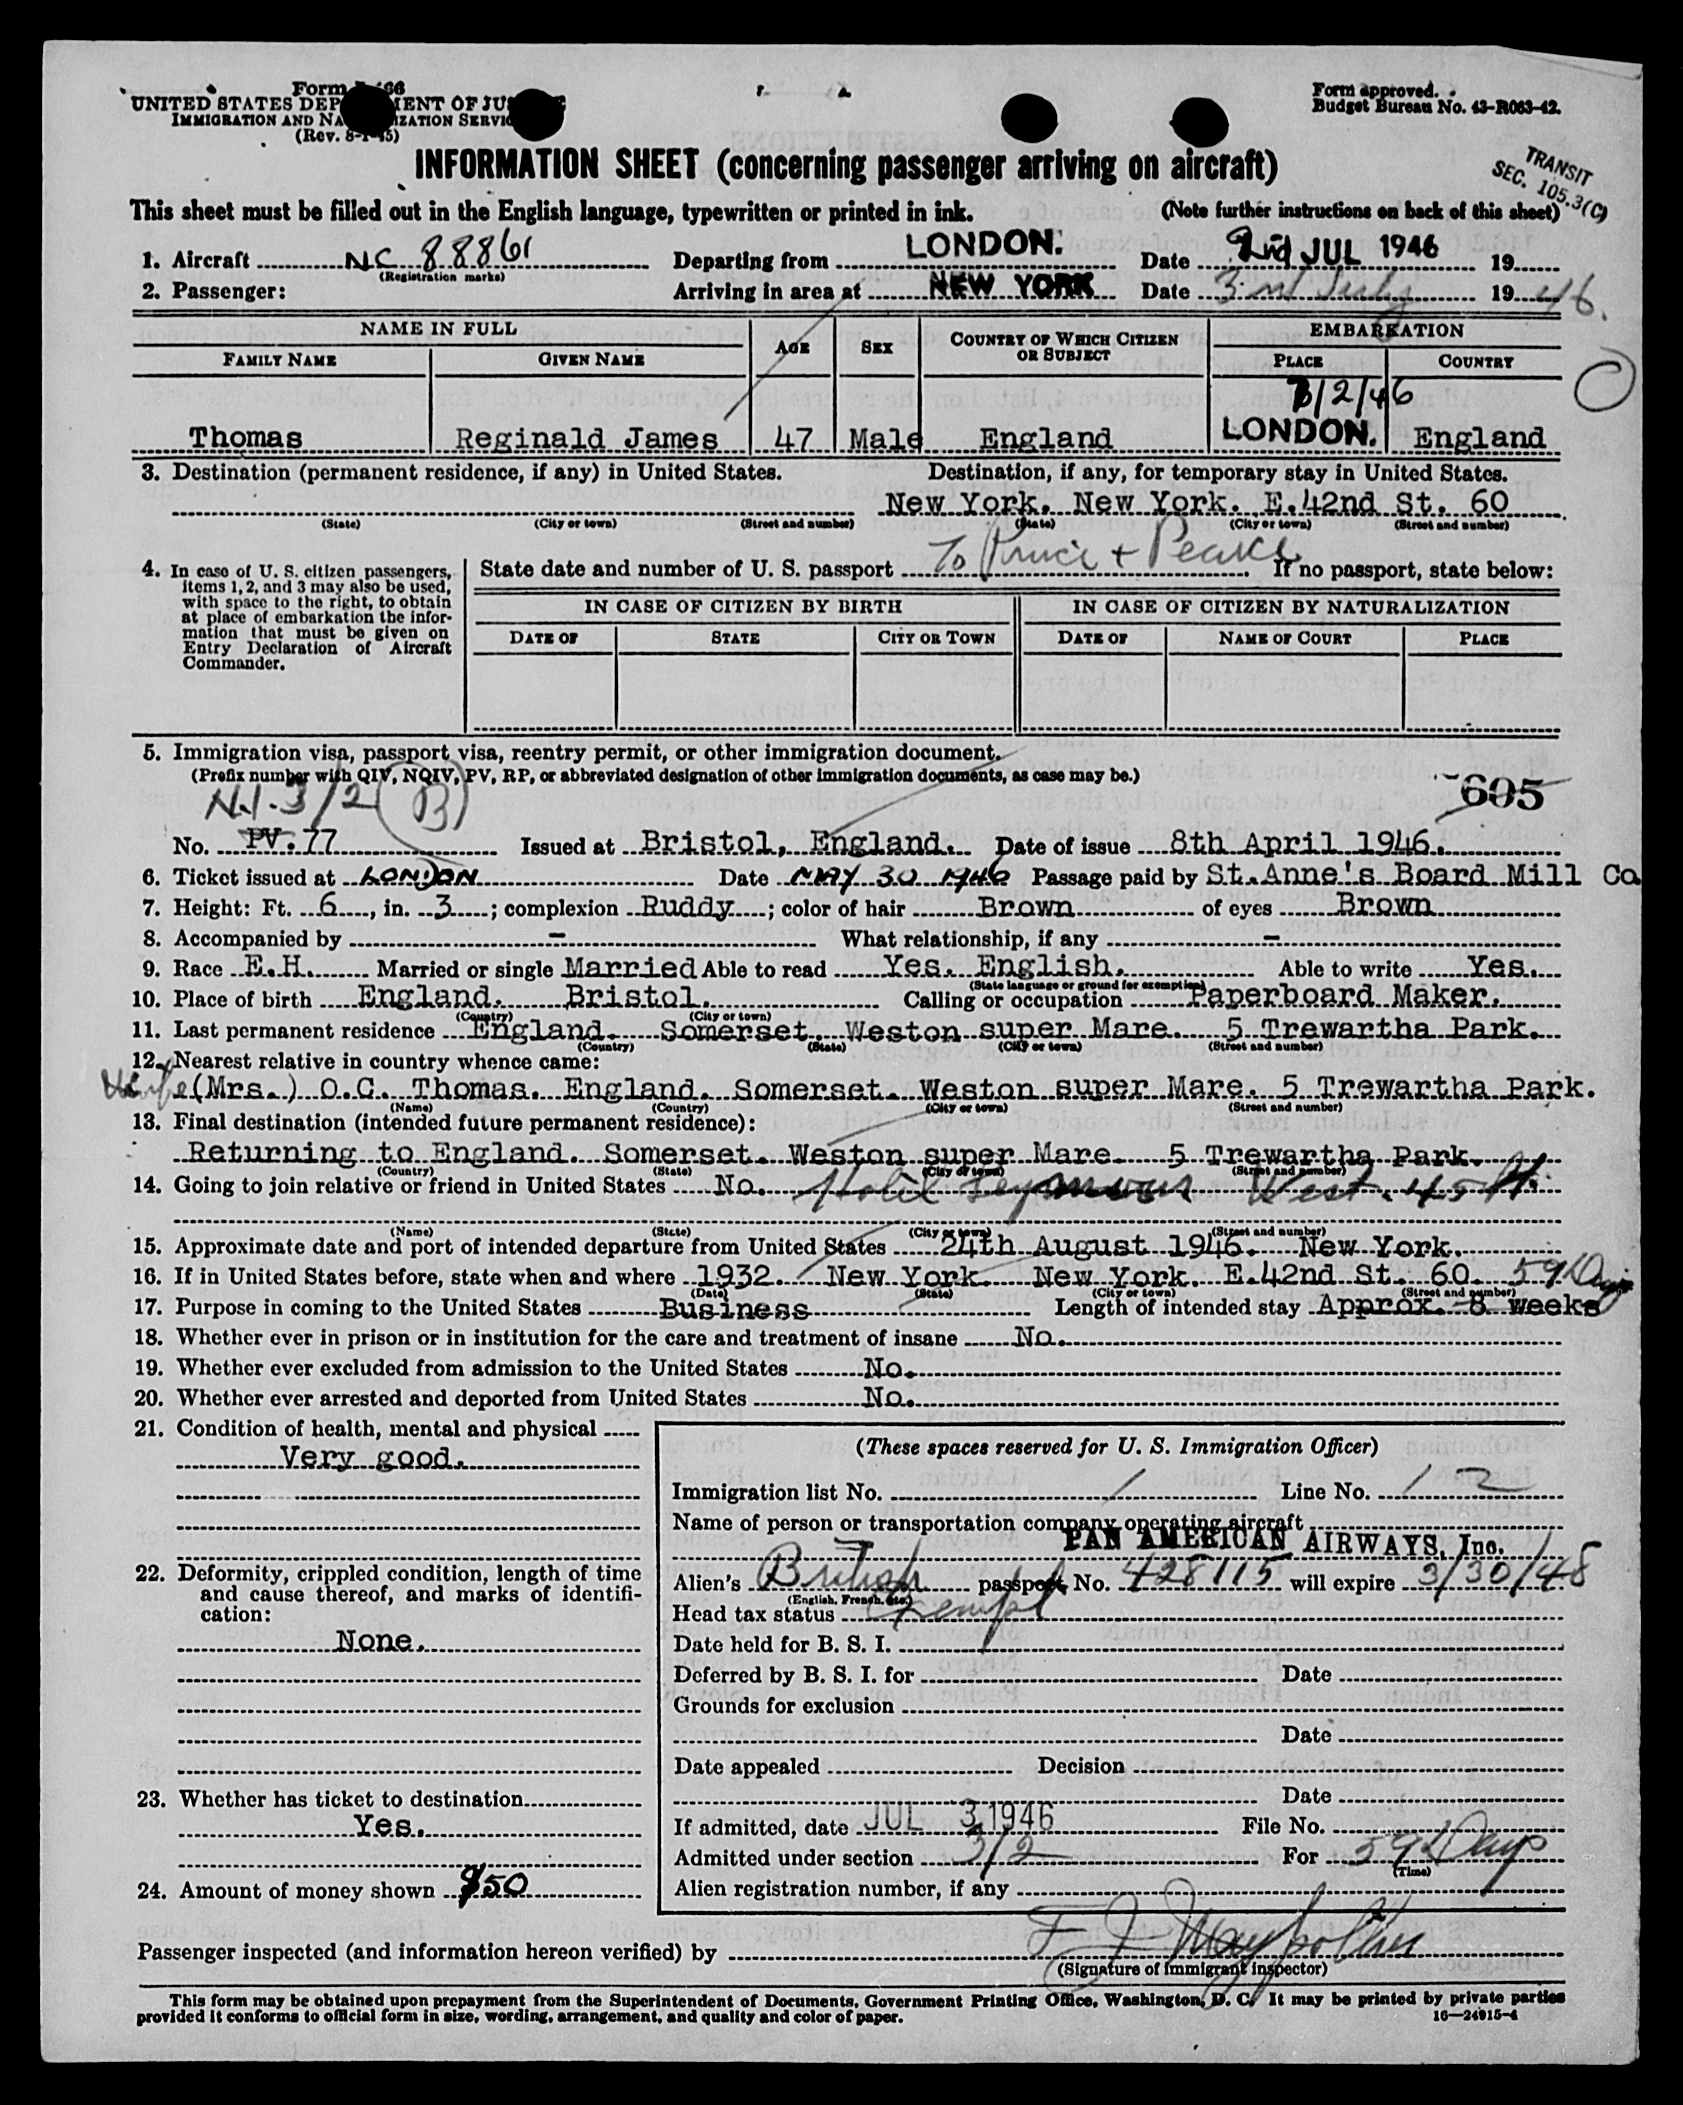 Form I-466
UNITED STATES DEPARTMENT OF JUSTICE
IMMIGRATION AND NATURALIZATION SERVICE
(Rev. 8-1-45)
Form approved.
Budget Bureau No. 43-R063-42.
INFORMATION SHEET (concerning passenger arriving on aircraft)
TRANSIT
SEC. 105.3(C)
This sheet must be filled out in the English language, typewritten or printed in ink. (Note further instructions on back of this sheet)
1. Aircraft NC 88861 Departing from LONDON. Date 2nd JUL 1946 19
(Registration marks)
2. Passenger: Arriving in area at NEW YORK Date 3 July 1946.
NAME IN FULL AGE SEX COUNTRY OF WHICH CITIZEN OR SUBJECT EMBARKATION
FAMILY NAME GIVEN NAME PLACE COUNTRY
7/2/46
Thomas Reginald James 47 Male England LONDON. England
3. Destination (permanent residence, if any) in United States. Destination, if any, for temporary stay in United States.
New York. New York. E.42nd St. 60
(State) (City or town) (Street and number) (State) (City or town) (Street and number)
4. In case of U. S. citizen passengers, items 1, 2, and 3 may also be used, with space to the right, to obtain at place of embarkation the information that must be given on Entry Declaration of Aircraft Commander.
State date and number of U. S. passport To + If no passport, state below:
IN CASE OF CITIZEN BY BIRTH IN CASE OF CITIZEN BY NATURALIZATION
DATE OF STATE CITY OR TOWN DATE OF NAME OF COURT PLACE
5. Immigration visa, passport visa, reentry permit, or other immigration document.
(Prefix number with QIV, NQIV, PV, RP, or abbreviated designation of other immigration documents, as case may be.)
605
3/2 (B)
No. PV.77 Issued at Bristol, England. Date of issue 8th April 1946.
6. Ticket issued at LONDON Date MAY 30 1946 Passage paid by St.Anne's Board Mill Co
7. Height: Ft. 6, in. 3; complexion Ruddy; color of hair Brown of eyes Brown
8. Accompanied by - What relationship, if any -
9. Race E.H. Married or single Married Able to read Yes. English. Able to write Yes.
(State language or ground for exemption)
10. Place of birth England. Bristol. Calling or occupation Paperboard Maker.
(Country) (City or town)
11. Last permanent residence England. Somerset. Weston super Mare. 5 Trewartha Park.
(Country) (State) (City or town) (Street and number)
12. Nearest relative in country whence came:
Wife (Mrs.) O.C. Thomas. England. Somerset. Weston super Mare. 5 Trewartha Park.
(Name) (Country) (City or town) (Street and number)
13. Final destination (intended future permanent residence):
Returning to England. Somerset. Weston super Mare. 5 Trewartha Park.
(Country) (State) (City or town) (Street and number)
14. Going to join relative or friend in United States No. Hotel Seymour West 45 St.
(Name) (State) (City or town) (Street and number)
15. Approximate date and port of intended departure from United States 24th August 1946. New York.
16. If in United States before, state when and where 1932. New York. New York. E.42nd St. 60. 59 Days
(Date) (State) (City or town) (Street and number)
17. Purpose in coming to the United States Business Length of intended stay Approx. 8 weeks
18. Whether ever in prison or in institution for the care and treatment of insane No.
19. Whether ever excluded from admission to the United States No.
20. Whether ever arrested and deported from United States No.
21. Condition of health, mental and physical
Very good.
22. Deformity, crippled condition, length of time and cause thereof, and marks of identification:
None.
23. Whether has ticket to destination
Yes.
24. Amount of money shown $50
(These spaces reserved for U. S. Immigration Officer)
Immigration list No. 1 Line No. 12
Name of person or transportation company operating aircraft
PAN AMERICAN AIRWAYS, Inc.
Alien's British passport No. 428115 will expire 3/30/48
(English, French, etc.)
Head tax status Exempt
Date held for B. S. I.
Deferred by B. S. I. for Date
Grounds for exclusion
Date
Date appealed Decision
Date
If admitted, date JUL 3 1946 File No.
Admitted under section 3/2 For 59 Days
(Time)
Alien registration number, if any
Passenger inspected (and information hereon verified) by F J
(Signature of immigrant inspector)
This form may be obtained upon prepayment from the Superintendent of Documents, Government Printing Office, Washington, D. C. It may be printed by private parties
provided it conforms to official form in size, wording, arrangement, and quality and color of paper.
16—24915-4